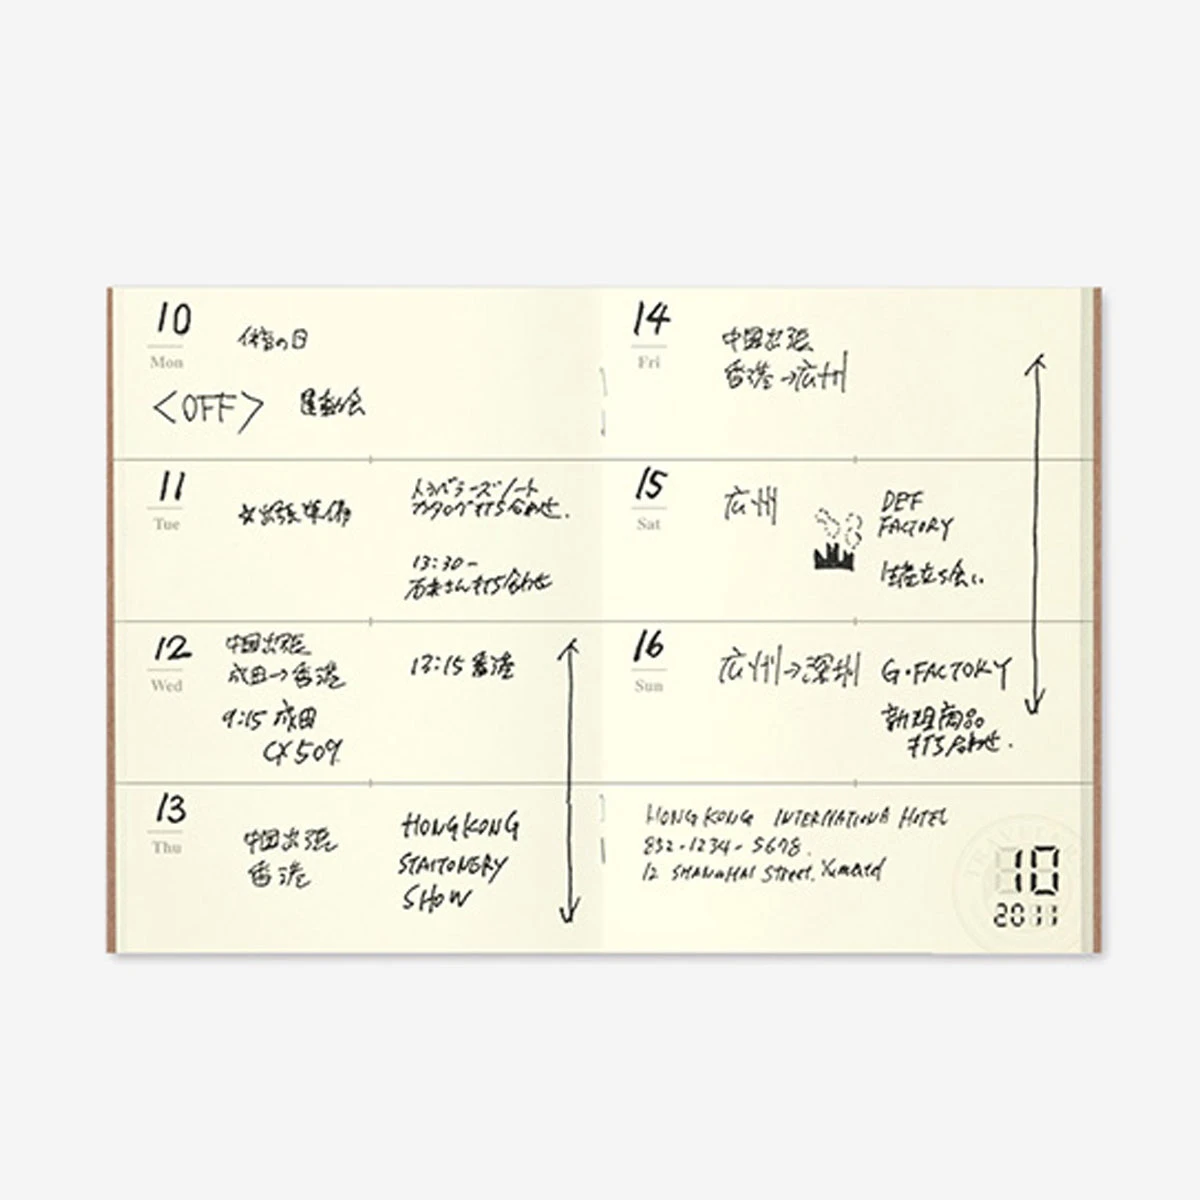 10
Mon
体育の日
<OFF> 運動会
11
Tue
★出張準備
トラベラーズノート
カタログ打ち合わせ.
13:30-
さん打ち合わせ
12
Wed
中国出張
成田→香港
9:15 成田
CX509
13:15 香港
13
Thu
中国出張
香港
HONGKONG
STAITONERY
SHOW
14
Fri
中国出張
香港→広州
15
Sat
広州
DEF
FACTORY
立ち会い
16
Sun
広州→深圳
G・FACTORY
新規商品
打ち合わせ.
HONG KONG INTERNATIONA HOTEL
852-1234-5678.
12 SHANGHAI Street,
10
2011